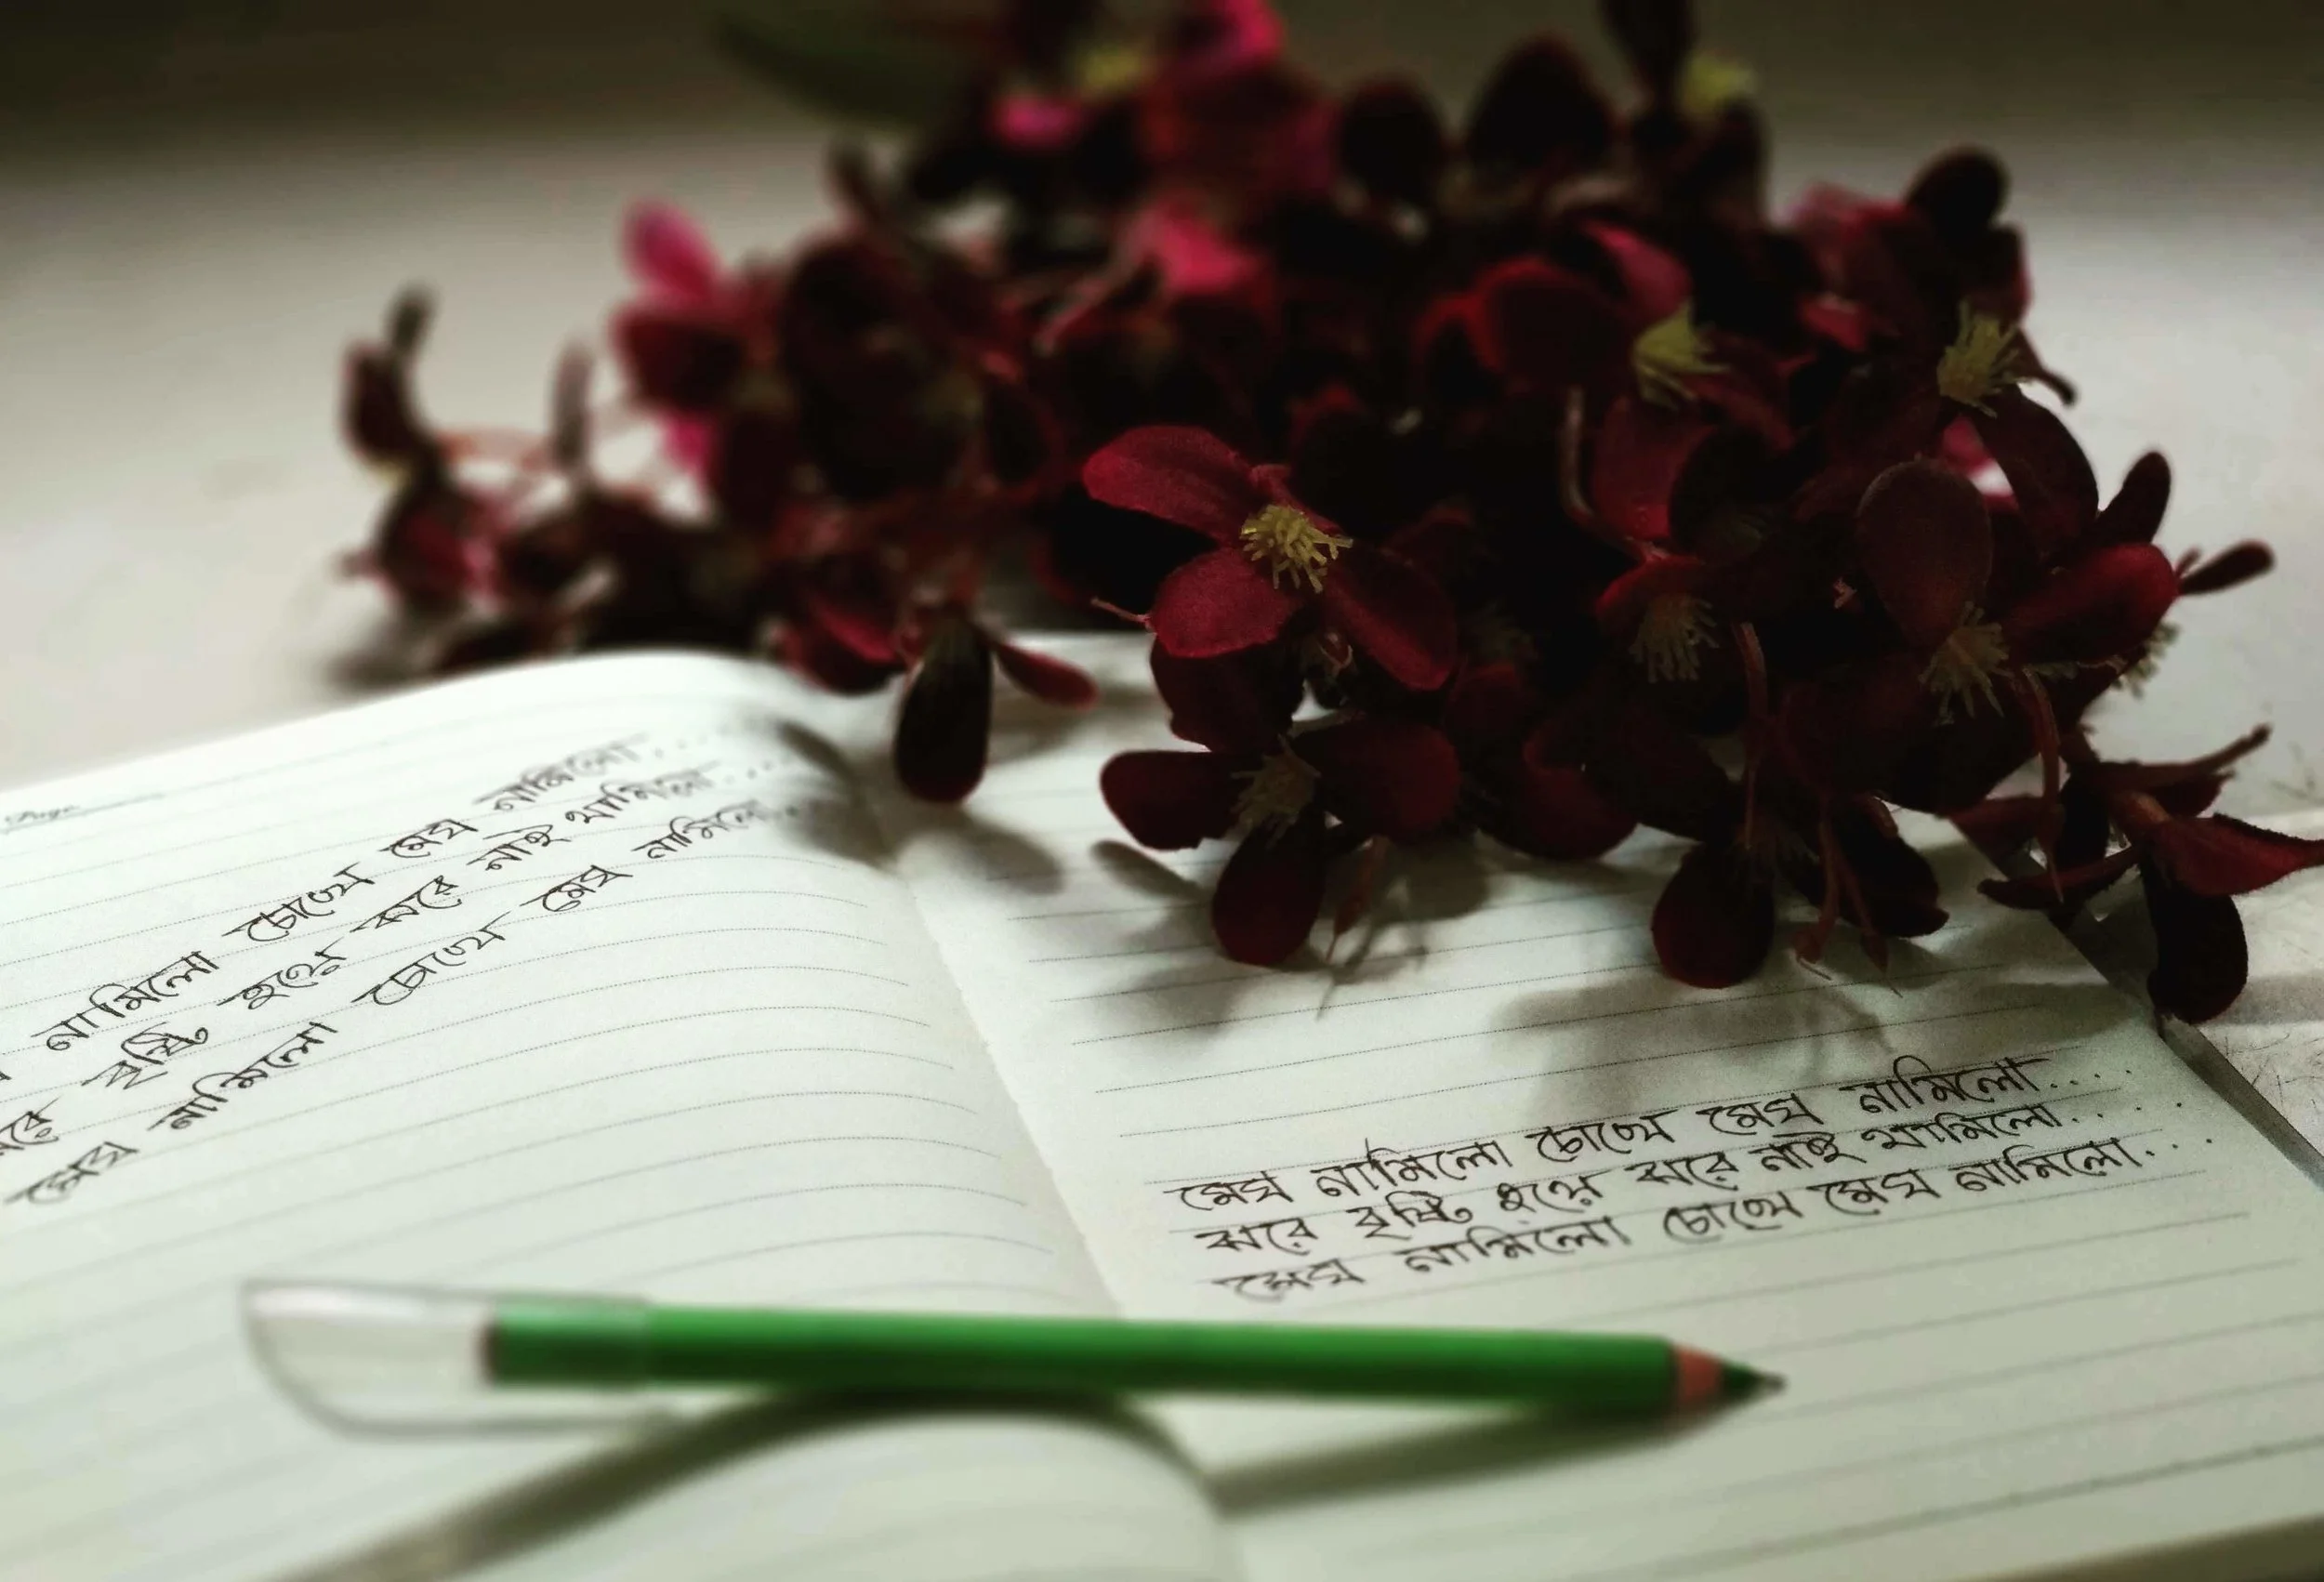 Page
নামিলো চোখে মেঘ নামিলো....
ঝরে বৃষ্টি হয়ে ঝরে নাই থামিলো....
মেঘ নামিলো চোখে মেঘ নামিলো...
মেঘ নামিলো চোখে মেঘ নামিলো....
ঝরে বৃষ্টি হয়ে ঝরে নাই থামিলো.....
মেঘ নামিলো চোখে মেঘ নামিলো...